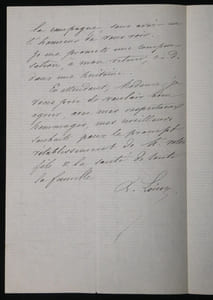 la campagne sans avoir eu
l'honneur de vous voir.
Je me promets une compen
sation, à mon retour, c. à. d.
dans une huitaine.
En attendant, Madame, je
vous prie de vouloir bien
agréer, avec mes respectueux
hommages, mes meilleurs
souhaits pour le prompt
rétablissement de M. votre
fils & la santé de toute
la famille